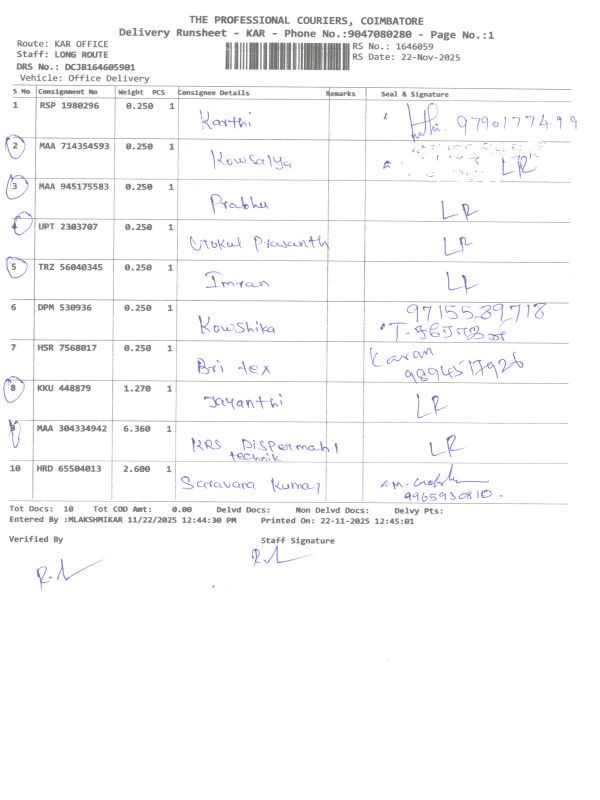 THE PROFESSIONAL COURIERS, COIMBATORE
Delivery Runsheet - KAR - Phone No.:9047080280 - Page No.:1
Route: KAR OFFICE RS No.: 1646059
Staff: LONG ROUTE RS Date: 22-Nov-2025
DRS No.: DCJB164605901
Vehicle: Office Delivery
S No Consignment No Weight PCS Consignee Details Remarks Seal & Signature
1 RSP 1980296 0.250 1 Karthi 9790177499
2 MAA 714354593 0.250 1 Kowsalya LR
3 MAA 945175583 0.250 1 Prabhu LR
4 UPT 2303707 0.250 1 Gokul Prasanth LR
5 TRZ 56040345 0.250 1 Imran LR
6 DPM 530936 0.250 1 Kowshika 9715539718
7 HSR 7568017 0.250 1 Bri tex Karan
9894517926
8 KKU 448879 1.270 1 Jayanthi LR
9 MAA 304334942 6.360 1 KRS LR
technik
10 HRD 65504013 2.600 1 Saravara Kumar
9965930810.
Tot Docs: 10 Tot COD Amt: 0.00 Delvd Docs: Non Delvd Docs: Delvy Pts:
Entered By :MLAKSHMIKAR 11/22/2025 12:44:30 PM Printed On: 22-11-2025 12:45:01
Verified By Staff Signature